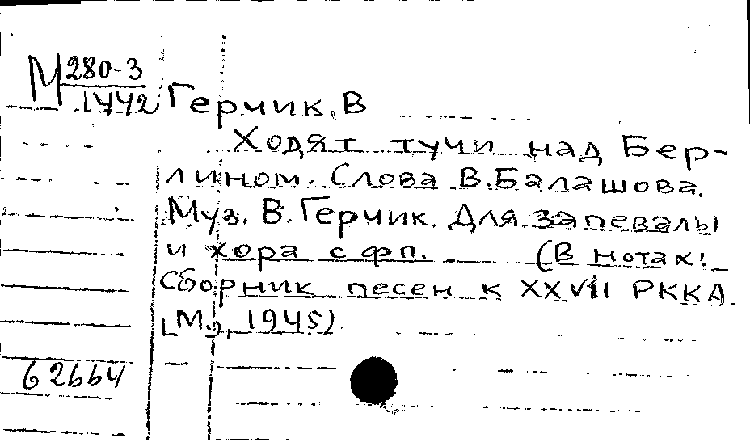 М 280-3
1442
Герчик, В
Ходят тучи над Бер-
лином. Слова В.Балашова.
Муз. В.Герчик. Для запевалы
и хора с фп. (В нотах:
Сборник песен к XXVII РККА.
М., 1945)
62664